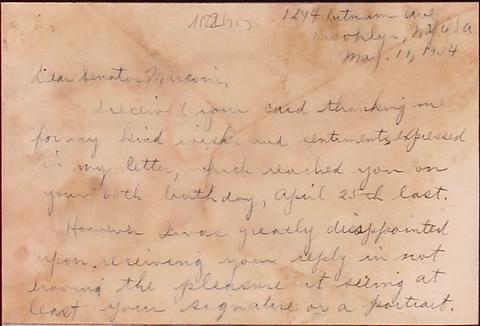 1294 Putnam Ave
Brooklyn, N.Y. U.S.A.
May. 11, 1934
Dear Senator Marconi,
I received your card thanking me
for my kind wishes and sentiments, expressed
in my letter, which reached you on
your 60th birthday, April 25th last.
However I was greatly disappointed
upon receiving your reply in not
having the pleasure at seeing at
least your signature or a portrait.